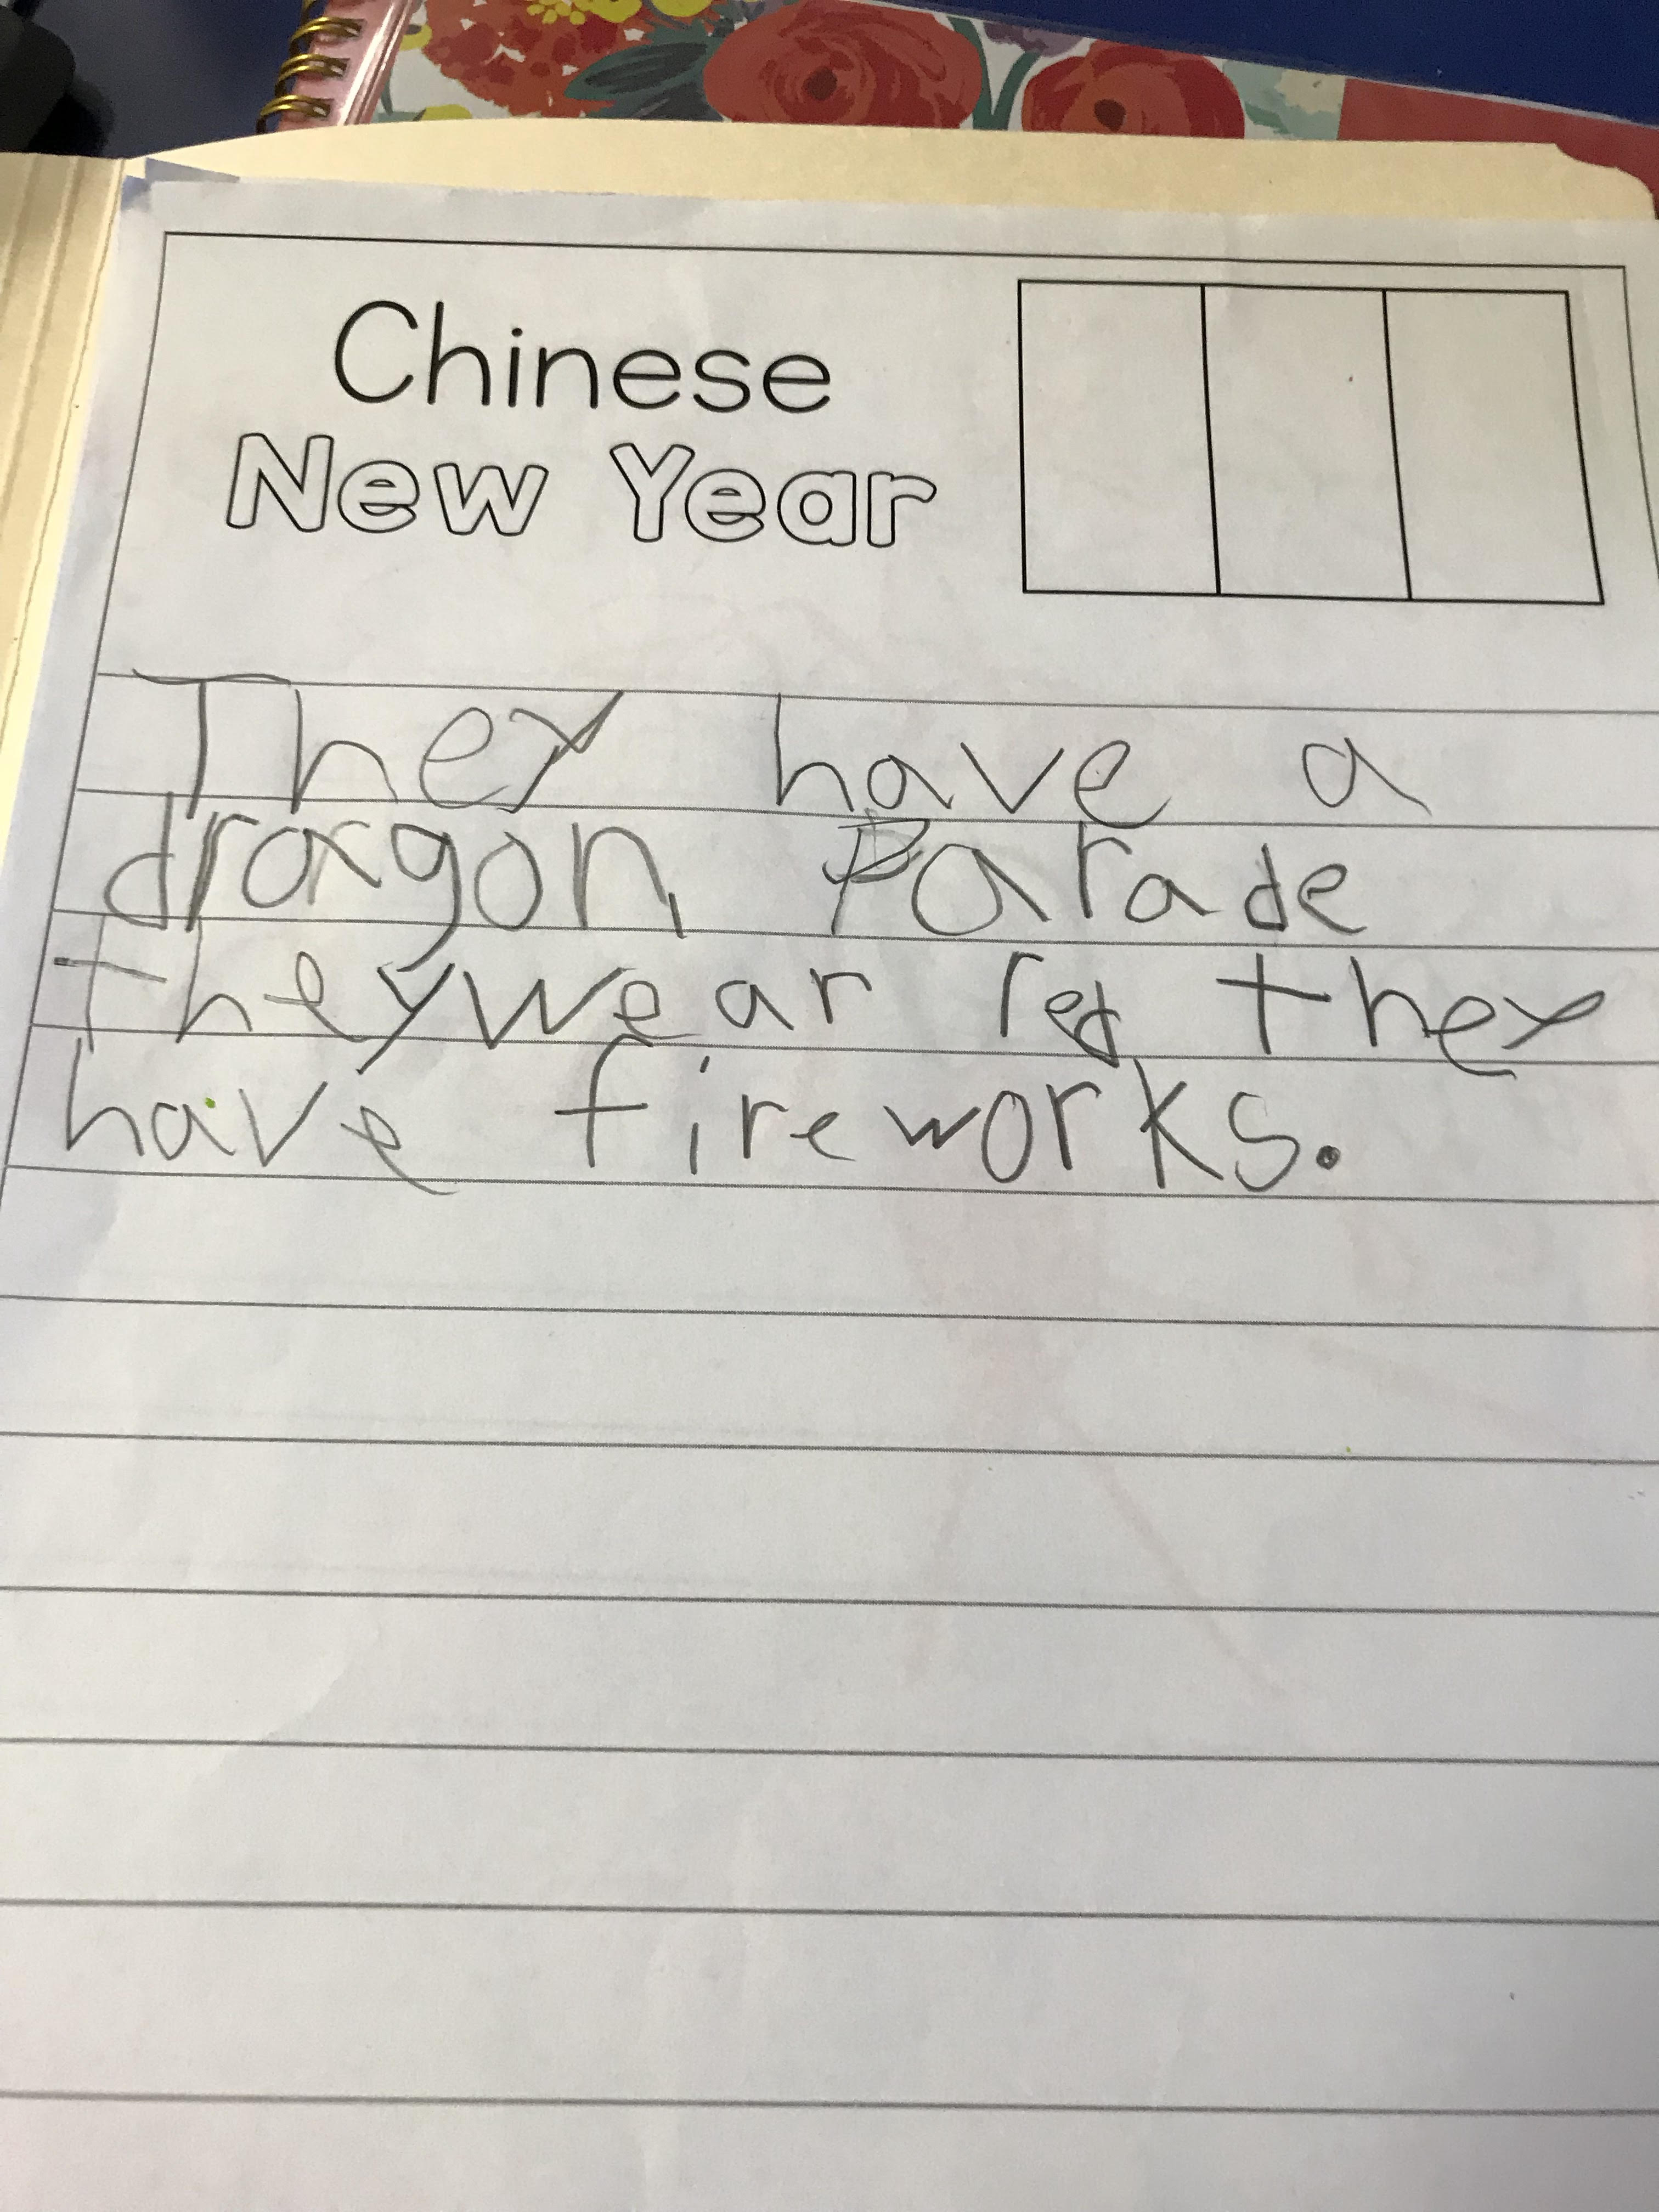 Chinese
New Year
They have a
dragon Parade
they wear red they
have fireworks.